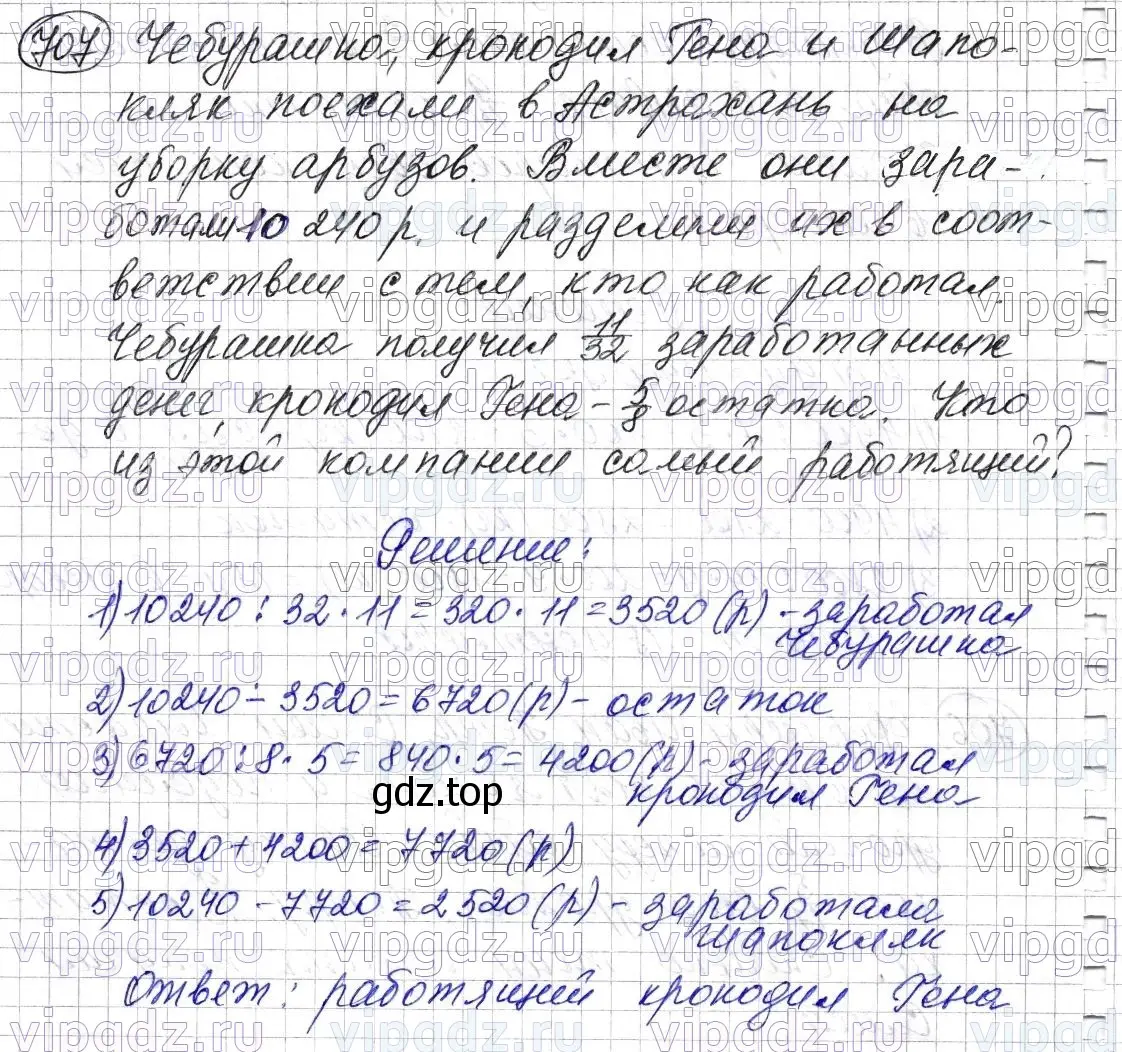 707 Чебурашка, крокодил Гена и Шапо-
кляк поехали в Астрахань на
уборку арбузов. Вместе они зара-
ботали 10 240 р. и разделили их в соот-
ветствии с тем, кто как работал.
Чебурашка получил 11/32 заработанных
денег, крокодил Гена - 5/8 остатка. Кто
из этой компании самый работящий?
Решение:
1) 10240 : 32 · 11 = 320 · 11 = 3520 (р) - заработал
Чебурашка
2) 10240 - 3520 = 6720 (р) - остаток
3) 6720 : 8 · 5 = 840 · 5 = 4200 (р) - заработал
крокодил Гена
gdz.top
4) 3520 + 4200 = 7720 (р)
5) 10240 - 7720 = 2520 (р) - заработала
Шапокляк
Ответ: работящий крокодил Гена
vipgdz.ru